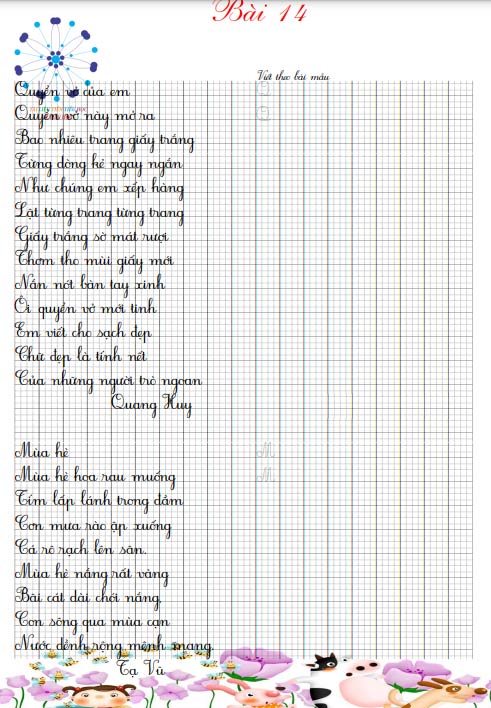 Bài 14
Viết theo bài mẫu
Quyển vở của em
Q
Quyển vở này mở ra
Q
Bao nhiêu trang giấy trắng
Từng dòng kẻ ngay ngắn
Như chúng em xếp hàng
Lật từng trang từng trang
Giấy trắng sờ mát rượi
Thơm tho mùi giấy mới
Nắn nót bàn tay xinh
Ôi quyển vở mới tinh
Em viết cho sạch đẹp
Chữ đẹp là tính nết
Của những người trò ngoan
Quang Huy
Mùa hè
M
Mùa hè hoa rau muống
M
Tím lấp lánh trong đầm
Cơn mưa rào ập xuống
Cá rô rạch lên sân.
Mùa hè nắng rất vàng
Bãi cát dài chói nắng
Con sông qua mùa cạn
Nước dềnh rộng mênh mang
Tạ Vũ